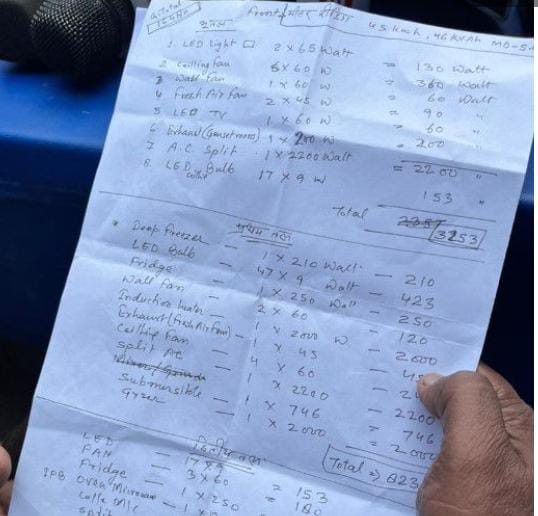 G. Total
Front
45 kwh, 46 KVAh MD-5.
भूतल
1. LED Light □ 2 x 65 Watt = 130 Watt
2 Ceilling fan 6 x 60 W = 360 Watt
3 Wall Fan 1 x 60 W = 60 Watt
4 Fresh Air Fan 2 x 45 W = 90 "
5 LED TV 1 x 60 W = 60 "
6 Exhaust (Genset room) 1 x 200 W = 200 "
7 A.C. Split 1 x 2200 Watt = 2200 "
8. LED Bulb 17 x 9 W 153 "
Total 3253
प्रथम तल
* Deep freezer — 1 x 210 Watt — 210
LED Bulb — 47 x 9 Watt — 423
Fridge — 1 x 250 Watt — 250
Wall Fan — 2 x 60 — 120
Induction heater — 1 x 2000 W — 2000
Exhaust (Fresh Air Fan) — 1 x 45 — 45
Ceilling Fan — 4 x 60 — 24
Split AC — 1 x 2200 — 2200
Submersible — 1 x 746 = 746
Gyzer — 1 x 2000 = 2000
Total => 823
द्वितीय तल
LED — 17 x 9 = 153
FAN — 3 x 60 = 180
Fridge — 1 x 250
Oven Microwave — 1 x
Split